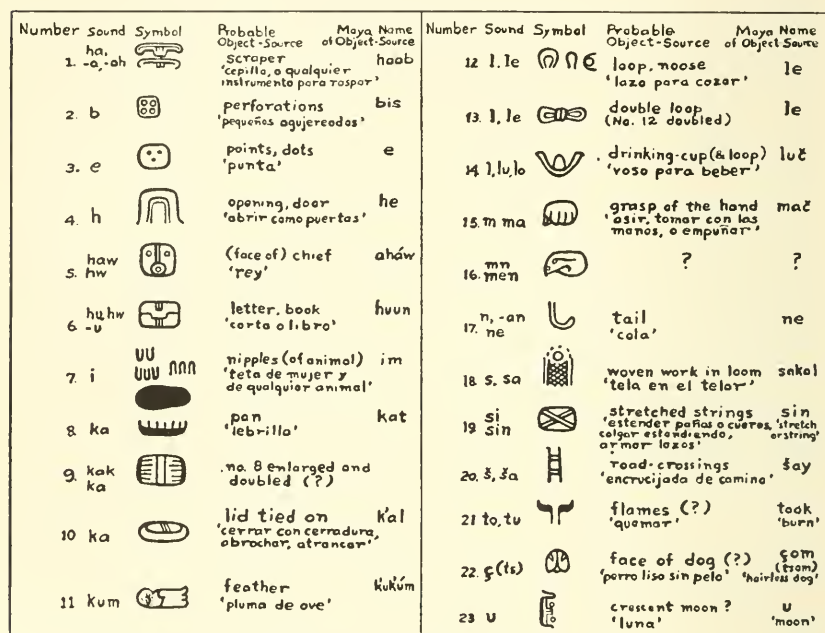 Number Sound Symbol Probable Object-Source Maya Name of Object-Source
1. ha, -a, -ah scraper haab
'cepillo, o qualquier
instrumento para raspar'
2. b perforations bis
'pequeños agujereados'
3. e points, dots e
'punta'
4. h opening, door he
'abrir como puertas'
5. haw hw (face of) chief aháw
'rey'
6. hu, hw -u letter, book huun
'carta o libro'
7. i nipples (of animal) im
'teta de mujer y
de qualquier animal'
8. ka pan kat
'lebrillo'
9. kak ka no. 8 enlarged and
doubled (?)
10 ka lid tied on k'al
'cerrar con cerradura,
abrochar, atrancar'
11 kum feather k'uk'úm
'pluma de ave'
Number Sound Symbol Probable Object-Source Maya Name of Object Source
12 l, le loop, noose le
'lazo para cazar'
13. l, le double loop le
(No. 12 doubled)
14 l, lu, lo drinking-cup (& loop) luč
'vaso para beber'
15. m ma grasp of the hand mač
'asir, tomar con las
manos, o empuñar'
16. mn men ? ?
17. n, -an ne tail ne
'cola'
18 s, sa woven work in loom sakal
'tela en el telar'
19. si sin stretched strings sin
'estender paños o cueros, 'stretch
colgar estendiendo, or string'
armar lazos'
20. š, ša road-crossings šay
'encrucijada de camino'
21 to, tu flames (?) took
'quemar' 'burn'
22. ç (ts) face of dog (?) çom
(tsom)
'perro liso sin pelo' 'hairless dog'
23 u crescent moon ? u
'luna' 'moon'